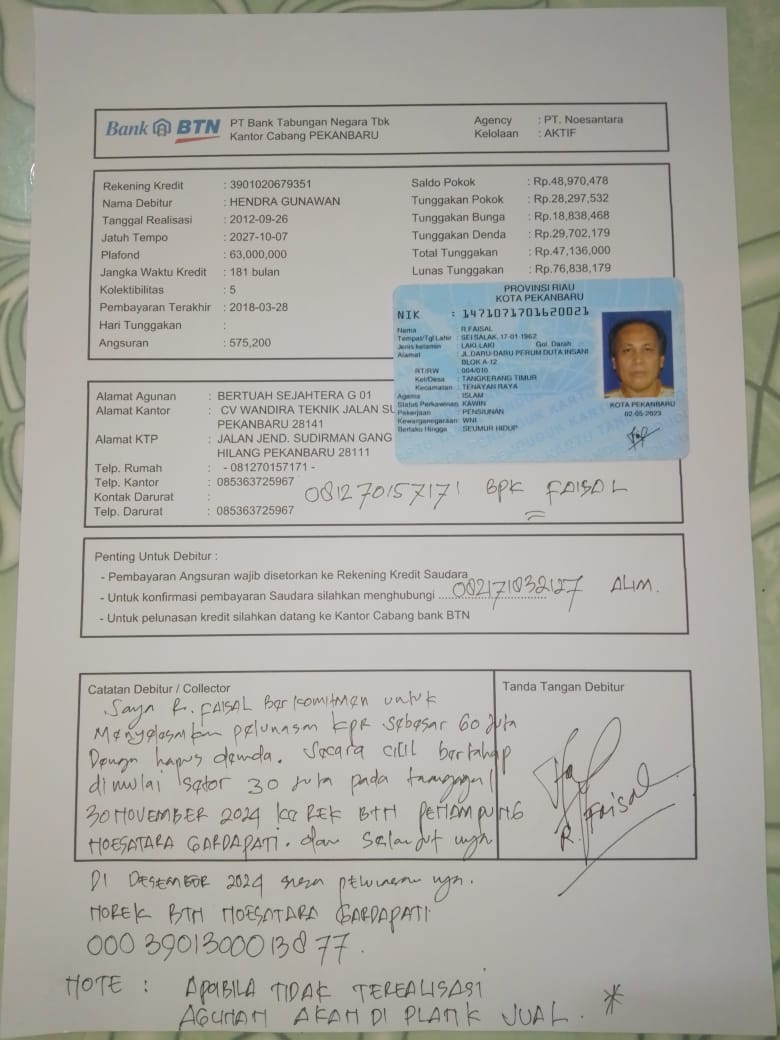 Bank BTN
PT Bank Tabungan Negara Tbk
Kantor Cabang PEKANBARU
Agency : PT. Noesantara
Kelolaan : AKTIF
Rekening Kredit : 3901020679351
Nama Debitur : HENDRA GUNAWAN
Tanggal Realisasi : 2012-09-26
Jatuh Tempo : 2027-10-07
Plafond : 63,000,000
Jangka Waktu Kredit : 181 bulan
Kolektibilitas : 5
Pembayaran Terakhir : 2018-03-28
Hari Tunggakan :
Angsuran : 575,200
Saldo Pokok : Rp.48,970,478
Tunggakan Pokok : Rp.28,297,532
Tunggakan Bunga : Rp.18,838,468
Tunggakan Denda : Rp.29,702,179
Total Tunggakan : Rp.47,136,000
Lunas Tunggakan : Rp.76,838,179
PROVINSI RIAU
KOTA PEKANBARU
NIK : 1471071701620021
Nama : R.FAISAL
Tempat/Tgl Lahir : SEI SALAK, 17-01-1962
Jenis kelamin : LAKI-LAKI Gol. Darah
Alamat : JL.DARU-DARU PERUM DUTA INSANI
BLOK A-12
RT/RW : 004/010
Kel/Desa : TANGKERANG TIMUR
Kecamatan : TENAYAN RAYA
Agama : ISLAM
Status Perkawinan: KAWIN
Pekerjaan : PENSIUNAN
Kewarganegaraan: WNI
Berlaku Hingga : SEUMUR HIDUP
KOTA PEKANBARU
02-05-2023
Alamat Agunan : BERTUAH SEJAHTERA G 01
Alamat Kantor : CV WANDIRA TEKNIK JALAN SU
PEKANBARU 28141
Alamat KTP : JALAN JEND. SUDIRMAN GANG
HILANG PEKANBARU 28111
Telp. Rumah : - 081270157171 -
Telp. Kantor : 085363725967
Kontak Darurat :
Telp. Darurat : 085363725967
081270157171 BPK FAISAL
Penting Untuk Debitur :
- Pembayaran Angsuran wajib disetorkan ke Rekening Kredit Saudara
- Untuk konfirmasi pembayaran Saudara silahkan menghubungi 082171032127 ALIM.
- Untuk pelunasan kredit silahkan datang ke Kantor Cabang bank BTN
Catatan Debitur / Collector
Tanda Tangan Debitur
Saya R. FAISAL Berkomitmen untuk
Menyelesaikan pelunasan KPR sebesar 60 Juta
Dengan hapus denda. Secara cicil bertahap
dimulai setor 30 Juta pada tanggal
30 NOVEMBER 2024 ke REK BTN PENAMPUNG
NOESATARA GARDAPATI. dan Selanjutnya
R. Faisal
DI DESEMBER 2024 sisa pelunasannya.
NOREK BTN NOESATARA GARDAPATI
000 3901300013877.
NOTE : APABILA TIDAK TEREALISASI
AGUNAN AKAN DI PLANK JUAL. *